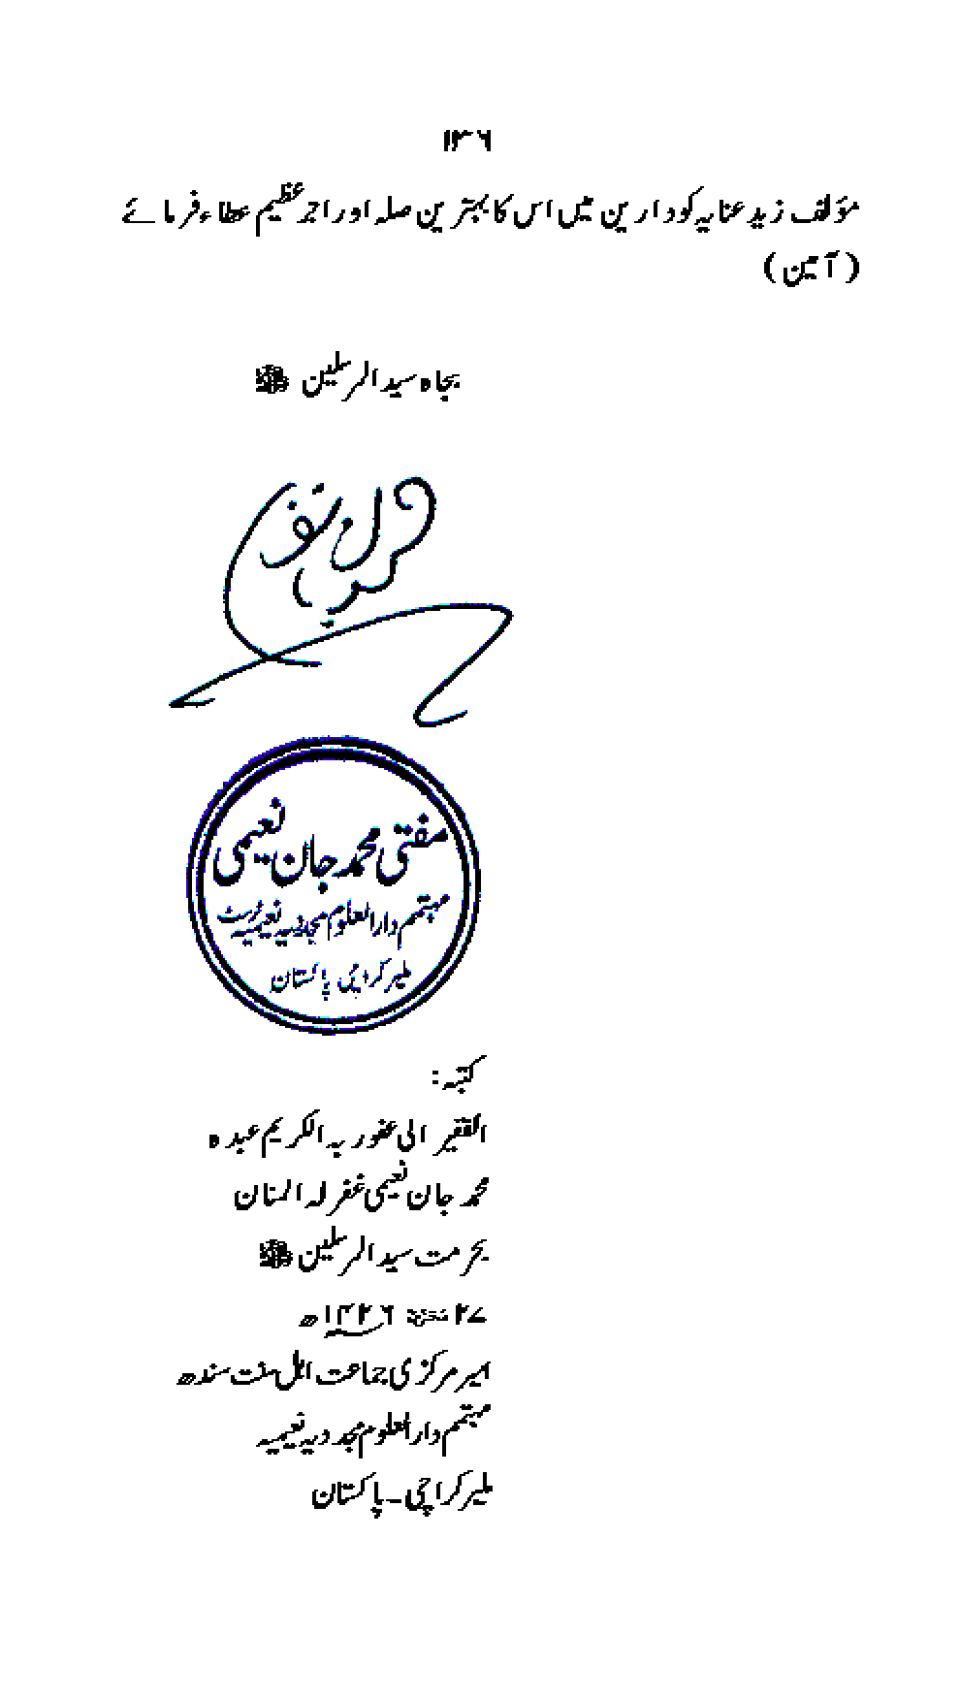 ۱۳۶
مؤلف زید عنایہ کو دارین میں اس کا بہترین صلہ اور اجر عظیم عطاء فرمائے
(آمین)
بجاہ سید المرسلین ﷺ
مفتی محمد جان نعیمی
مہتمم دارالعلوم مجددیہ نعیمیہ ٹرسٹ
ملیر کراچی پاکستان
کتبہ:
الفقیر الی عفو ربہ الکریم عبدہ
محمد جان نعیمی غفرلہ المنان
بحرمت سید المرسلین ﷺ
۲۷ ۱۴۲۶ھ
امیر مرکزی جماعت اہل سنت سندھ
مہتمم دارالعلوم مجددیہ نعیمیہ
ملیر کراچی۔ پاکستان